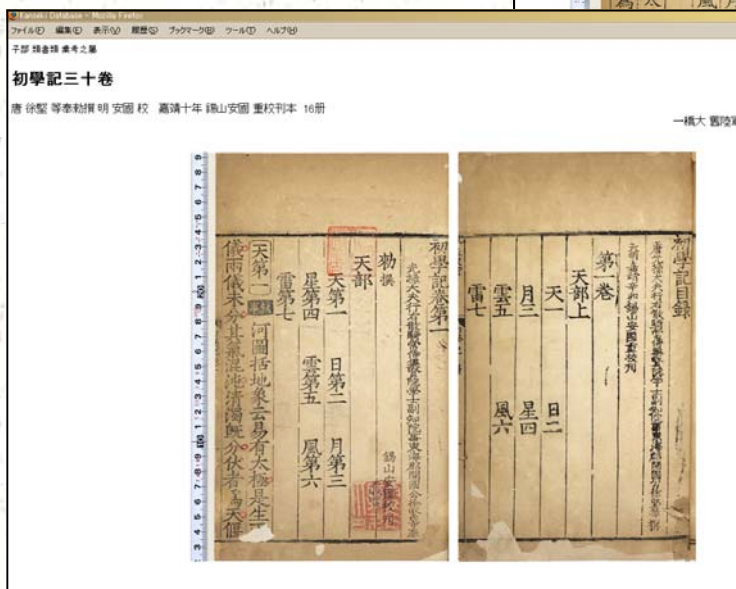 Kanseki Database - Mozilla Firefox
ファイル(F) 編集(E) 表示(V) 履歴(S) ブックマーク(B) ツール(T) ヘルプ(H)
子部 類書類 彙考之屬
初學記三十卷
唐 徐堅 等奉勅撰 明 安國 校 嘉靖十年 錫山安國 重校刊本 16册
一橋大 舊陸軍
初學記目錄
第一卷
天部上
天一 日二
月三 星四
雲五 風六
雷七
初學記卷第一
錫山安國校刊
勑撰
天部
天第一 日第二 月第三
星第四 雲第五 風第六
雷第七
天第一 叙事 河圖括地象云易有太極是生兩
儀兩儀未分其氣混沌清濁既分伏者為天偃